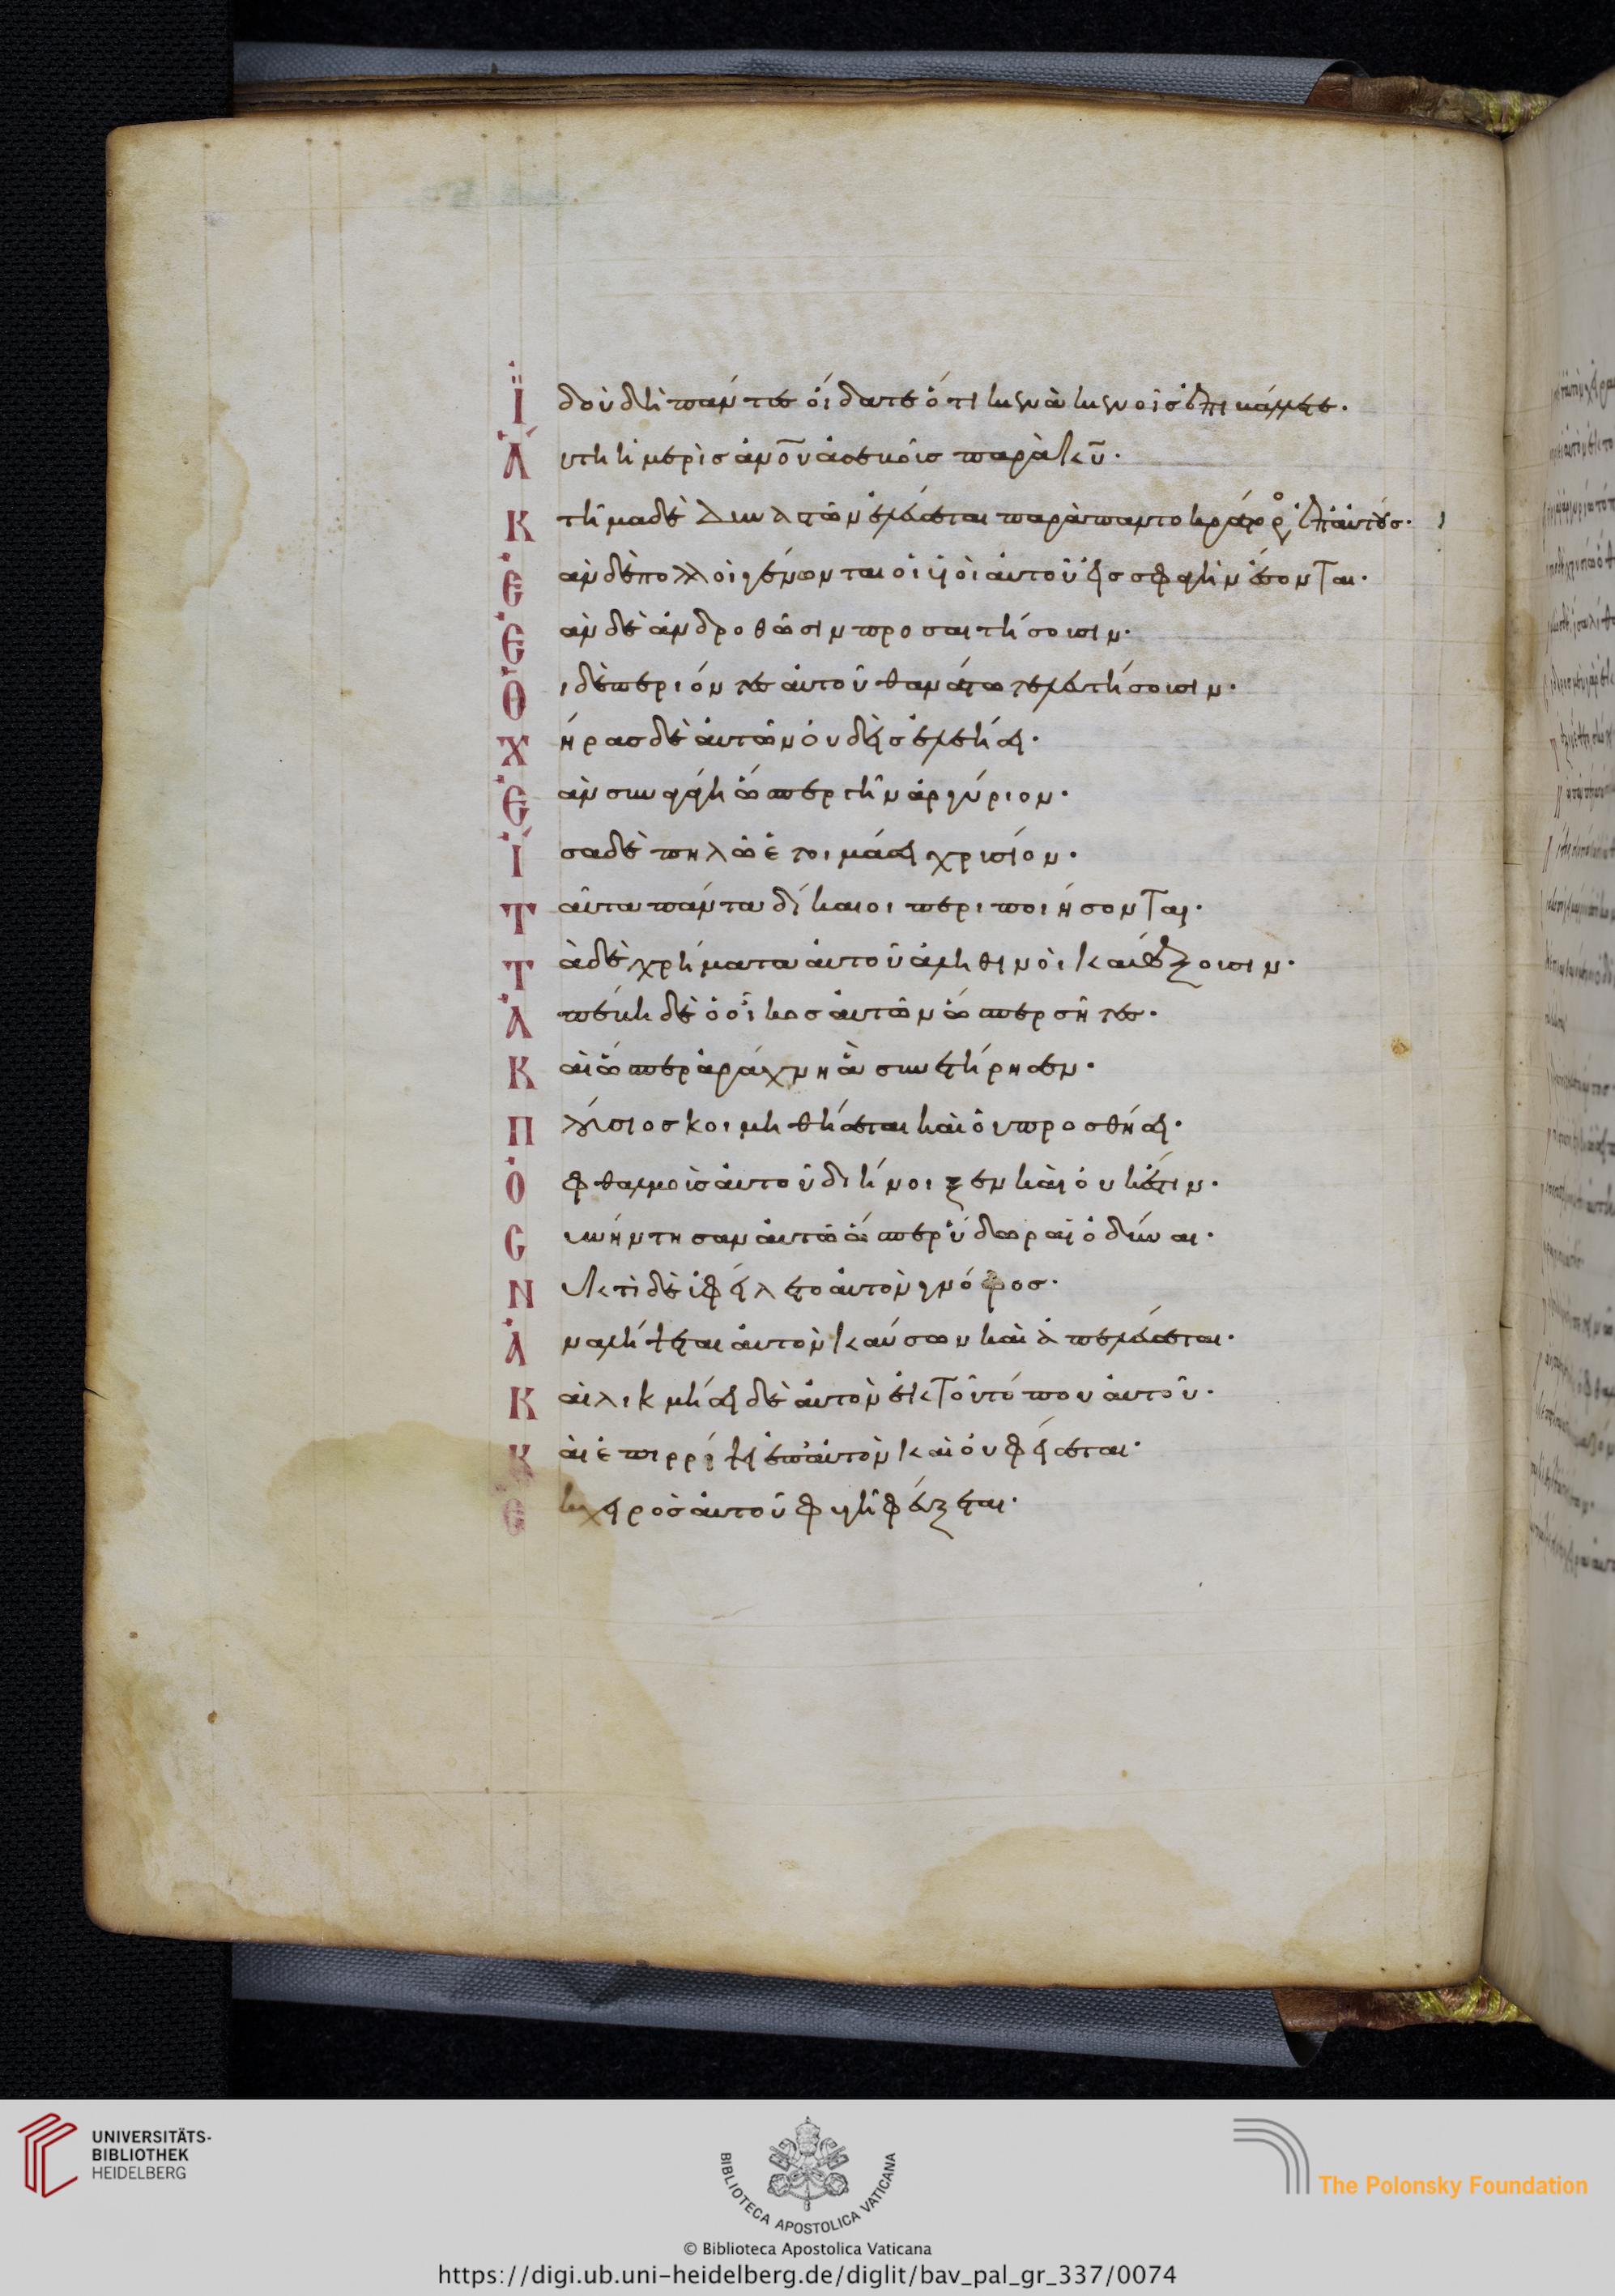 Ἰδοὺ δὴ πάντες οἴδατε ὅτι κενὰ κενοῖς ἐπιβάλλετε·
Αὕτη ἡ μερὶς ἀνου ἀσεβοῦς παρὰ κυ·
Κτῆμα δὲ δυναστῶν ἐλεύσεται παρὰ παντοκράτορος ἐπ' αὐτούς·
Ἐὰν δὲ πολλοὶ γένωνται οἱ υἱοὶ αὐτοῦ εἰς σφαγὴν ἔσονται·
Ἐὰν δὲ ἀνδρωθῶσιν προσαιτήσουσιν·
Οἱ δὲ περιόντες αὐτοῦ θανάτω τελευτήσουσιν·
Χήρας δὲ αὐτῶν οὐδεὶς ἐλεήσει·
Ἐὰν συναγάγη ὥσπερ γῆν ἀργύριον·
Ἴσα δὲ πηλῶ ἑτοιμάσει χρυσίον·
Ταῦτα πάντα δίκαιοι περιποιήσονται·
Τὰ δὲ χρήματα αὐτοῦ ἀληθινοὶ καθέξουσιν·
Ἀπέβη δὲ ὁ οἶκος αὐτῶν ὥσπερ σῆτες·
Καὶ ὥσπερ ἀράχνη ἃ συνετήρησεν·
Πλούσιος κοιμηθήσεται καὶ οὐ προσθήσει·
Ὀφθαλμοὺς αὐτοῦ διήνοιξεν καὶ οὐκ ἔστιν·
Συνήντησαν αὐτῶ ὥσπερ ὕδωρ αἱ ὀδύναι·
Νυκτὶ δὲ ὑφείλετο αὐτὸν γνόφος·
Ἀναλήψεται αὐτὸν καύσων καὶ ἀπελεύσεται·
Καὶ λικμήσει δὲ αὐτὸν ἐκ τοῦ τόπου αὐτοῦ·
Καὶ ἐπιρρίψει ἐπ' αὐτὸν καὶ οὐ φείσεται·
Ἐκ χειρὸς αὐτοῦ φυγῆ φεύξεται·
UNIVERSITÄTS-
BIBLIOTHEK
HEIDELBERG
BIBLIOTECA APOSTOLICA VATICANA
The Polonsky Foundation
© Biblioteca Apostolica Vaticana
https://digi.ub.uni-heidelberg.de/diglit/bav_pal_gr_337/0074